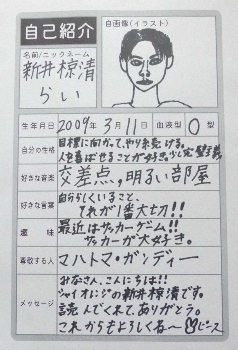 自己紹介
自画像(イラスト)
名前/ニックネーム
新井椋清
らい
生年月日 2009年3月11日 血液型 O型
自分の性格 目標に向かって、やり続ける。
人を喜ばせることが好き。少し完璧主義
好きな音楽 交差点,明るい部屋
好きな言葉 自分らしくいること、
それが1番大切!!
趣味 最近はサッカーゲーム!!
サッカーが大好き。
尊敬する人 マハトマ・ガンディー
メッセージ みなさん、こんにちは!!
シャイオレンジの新井椋清です。
読んでくれて、ありがとう。
これからもよろしくね〜 ピース